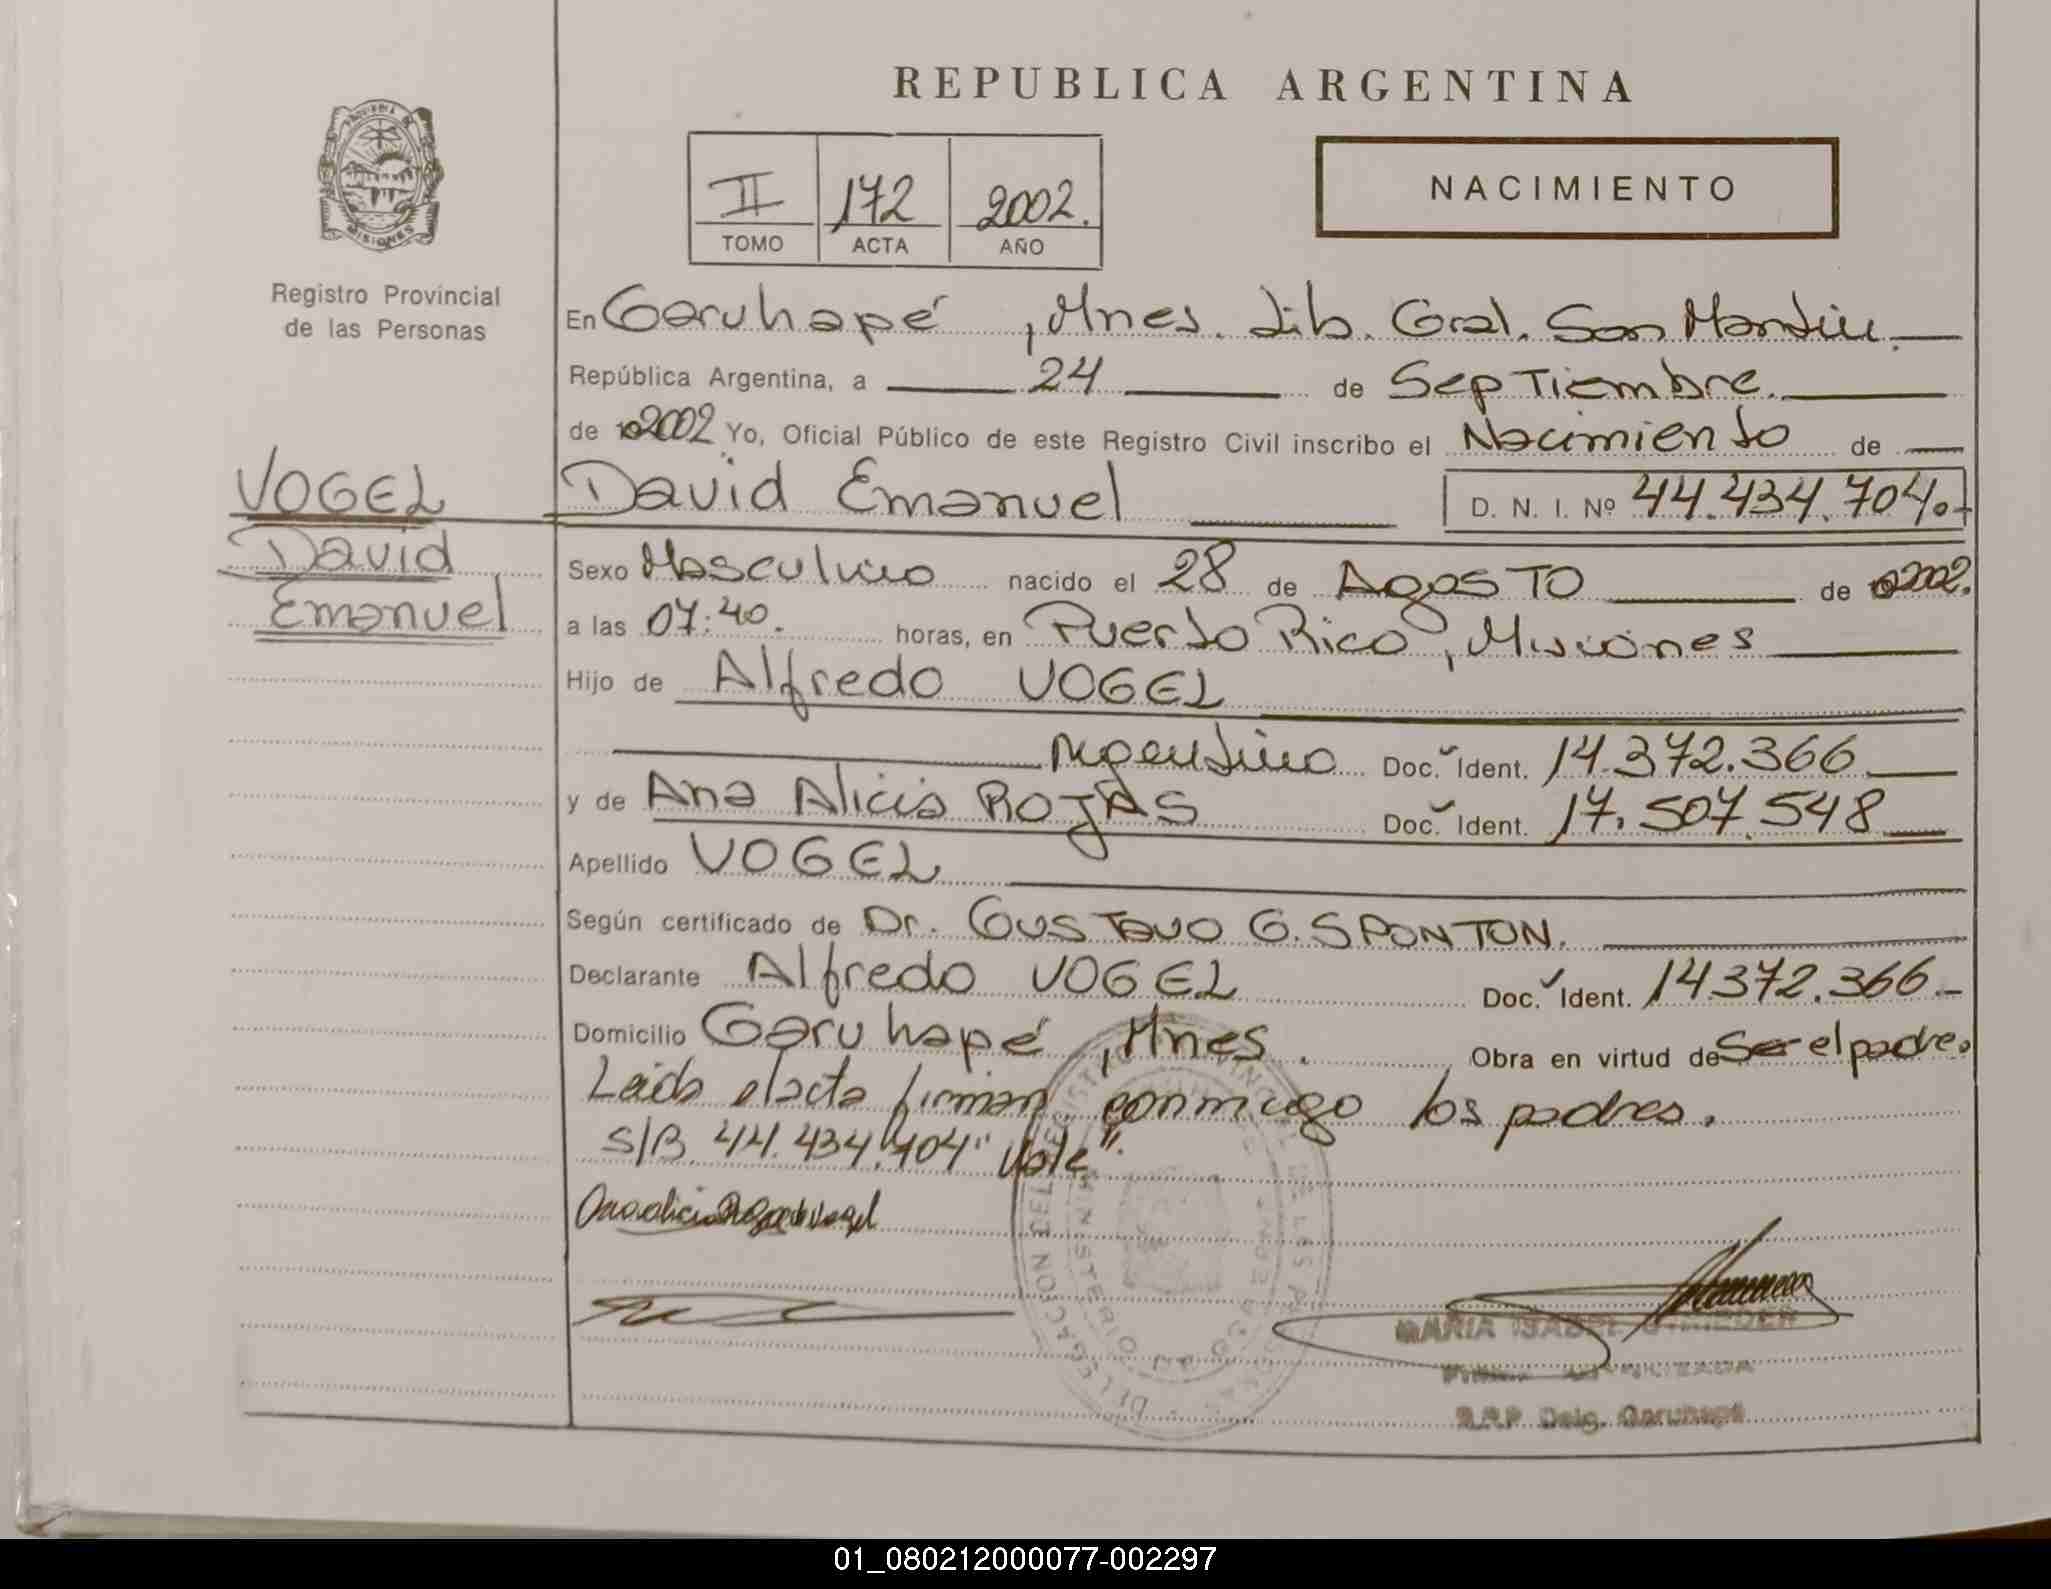 REPUBLICA ARGENTINA
PROVINCIA DE
MISIONES
Registro Provincial
de las Personas
II 172 2002.
TOMO ACTA AÑO
NACIMIENTO
En Garuhapé, Mnes. Lib. Gral. San Martín.
República Argentina, a 24 de Septiembre.
de 2002 Yo, Oficial Público de este Registro Civil inscribo el Nacimiento de
VOGEL
David
Emanuel
David Emanuel D. N. I. Nº 44.434.704.
Sexo Masculino nacido el 28 de Agosto de 2002.
a las 07:40. horas, en Puerto Rico, Misiones
Hijo de Alfredo VOGEL
Argentino Doc. Ident. 14.372.366
y de Ana Alicia ROJAS Doc. Ident. 17.507.548
Apellido VOGEL
Según certificado de Dr. GUSTAVO G. SPONTON.
Declarante Alfredo VOGEL Doc. Ident. 14372.366
Domicilio Garuhapé, Mnes. Obra en virtud de Ser el padre.
Leída el acta firman conmigo los padres.
S/B 44.434.704 "Vale".
MARIA ISABEL
R.R.P Delg. Garuhapé
01_080212000077-002297